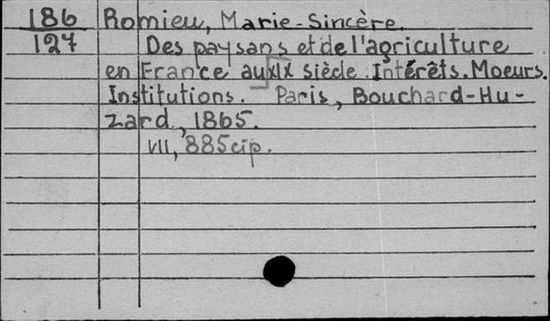 186 Romieu, Marie-Sincère.
127 Des paysans et de l'agriculture
en France au XIX siècle. Intérêts. Moeurs.
Institutions. Paris, Bouchard-Hu-
zard, 1865.
VII, 885 cip.